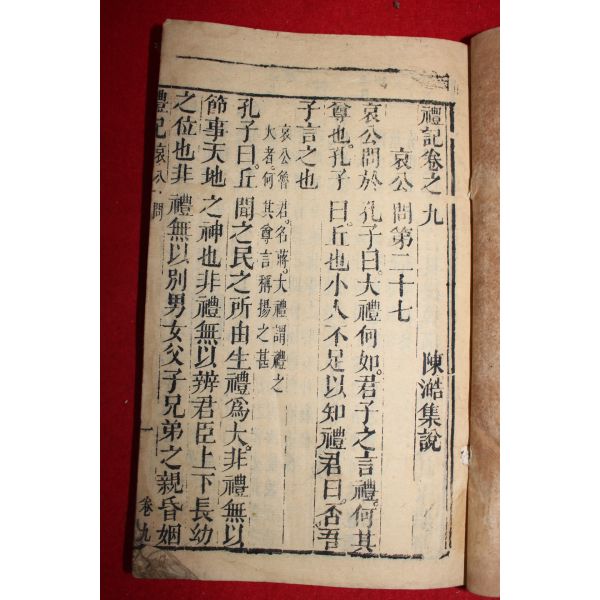 禮記卷之九
陳澔集說
哀公問第二十七
哀公問於孔子曰。大禮何如。君子之言禮。何其
尊也。孔子曰。丘也小人不足以知禮。君曰。否。吾
子言之也
哀公魯君。名蔣。大禮謂禮之
大者。何其尊言稱揚之甚
孔子曰。丘聞之民之所由生禮爲大。非禮無以
節事天地之神也非禮無以辨君臣上下長幼
之位也非禮無以別男女父子兄弟之親昏姻
禮記
哀公問
一
卷九